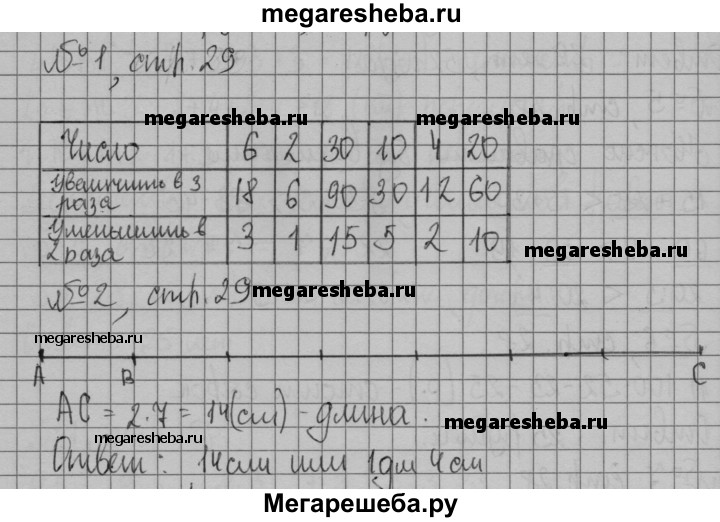 megaresheba.ru
№1, стр. 29
megaresheba.ru megaresheba.ru
Число 6 2 30 10 4 20
Увеличить в 3 раза 18 6 90 30 12 60
Уменьшить в 2 раза 3 1 15 5 2 10
megaresheba.ru
№2, стр. 29
megaresheba.ru
megaresheba.ru
А В С
АС = 2·7 = 14(см) - длина.
megaresheba.ru
megaresheba.ru
Ответ: 14см или 1дм 4см
Мегарешеба.ру